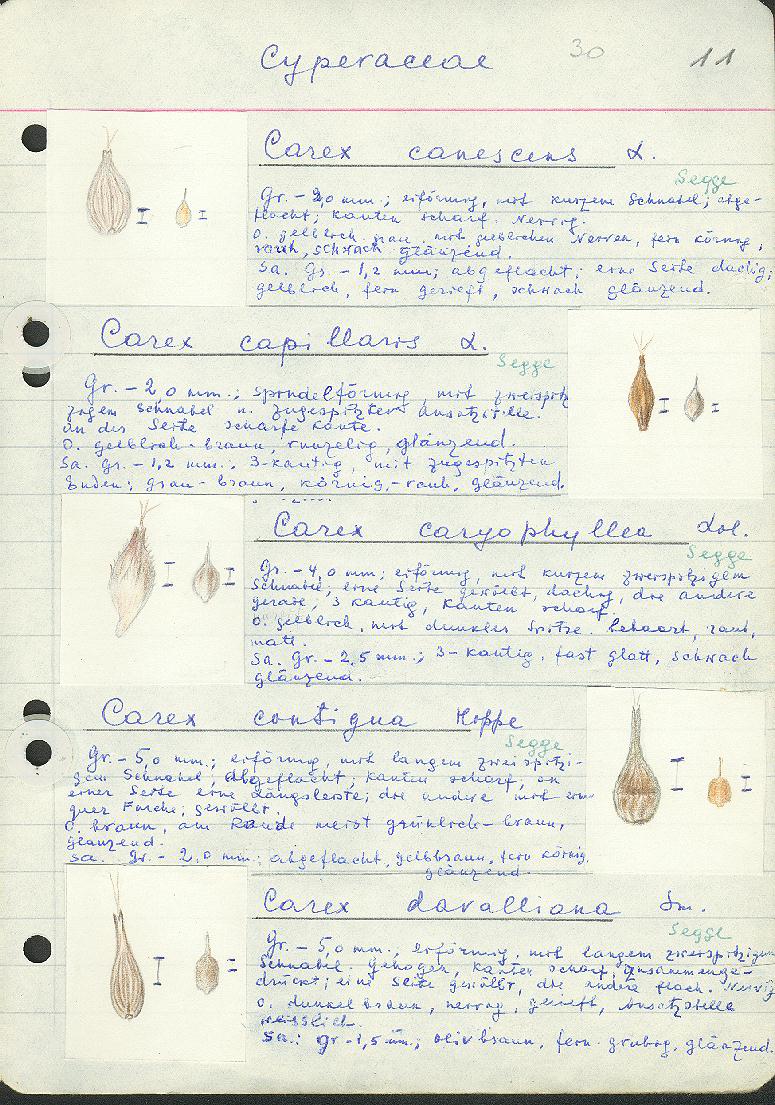 Cyperaceae 30 11
Carex canescens L.
Segge
Gr. - 2,0 mm.; eiförmig, mit kurzem Schnabel; abge-
flacht; Kanten scharf. Nervig.
O. gelblich grau, mit gelblichen Nerven, fein körnig,
rauh, schwach glänzend.
Sa. Gr. - 1,2 mm; abgeflacht; eine Seite dachig;
gelblich, fein gerieft, schwach glänzend.
Carex capillaris L.
Segge
Gr. - 2,0 mm.; spindelförmig, mit zweispitz
zigem Schnabel u. zugespitzter Ansatzstelle.
An der Seite scharfe Kante.
O. gelblich-braun, runzelig, glänzend.
Sa. Gr. - 1,2 mm.; 3-kantig, mit zugespitzten
Enden; grau-braun, körnig,-rauh, glänzend.
Carex caryophyllea
Segge
Gr. - 4,0 mm; eiförmig, mit kurzem zweispitzigem
Schnabel; eine Seite gewölbt, dachig, die andere
gerade; 3 kantig, Kanten scharf.
O. gelblich, mit dunkler Spitze. behaart, rauh,
matt.
Sa. Gr. - 2,5 mm.; 3-kantig, fast glatt, schwach
glänzend.
Carex contigua Hoppe
Segge
Gr. - 5,0 mm.; eiförmig, mit langem zweispitzi-
gem Schnabel; abgeflacht; Kanten scharf; an
einer Seite eine Längsleiste; die andere mit
Furche; gewölbt.
O. braun, am Rande meist grünlich-braun,
glänzend.
Sa. Gr. - 2,0 mm.; abgeflacht, gelbbraun, fein körnig,
glänzend.
Carex davalliana Sm.
Segge
Gr. - 5,0 mm., eiförmig, mit langem zweispitzigem
Schnabel. Gebogen, Kanten scharf, zusammenge-
drückt; eine Seite gewölbt, die andere flach. Nervig
O. dunkel braun, nervig, gerieft, Ansatzstelle
weisslich.
Sa.: Gr - 1,5 mm.; olivbraun, fein grubig, glänzend.